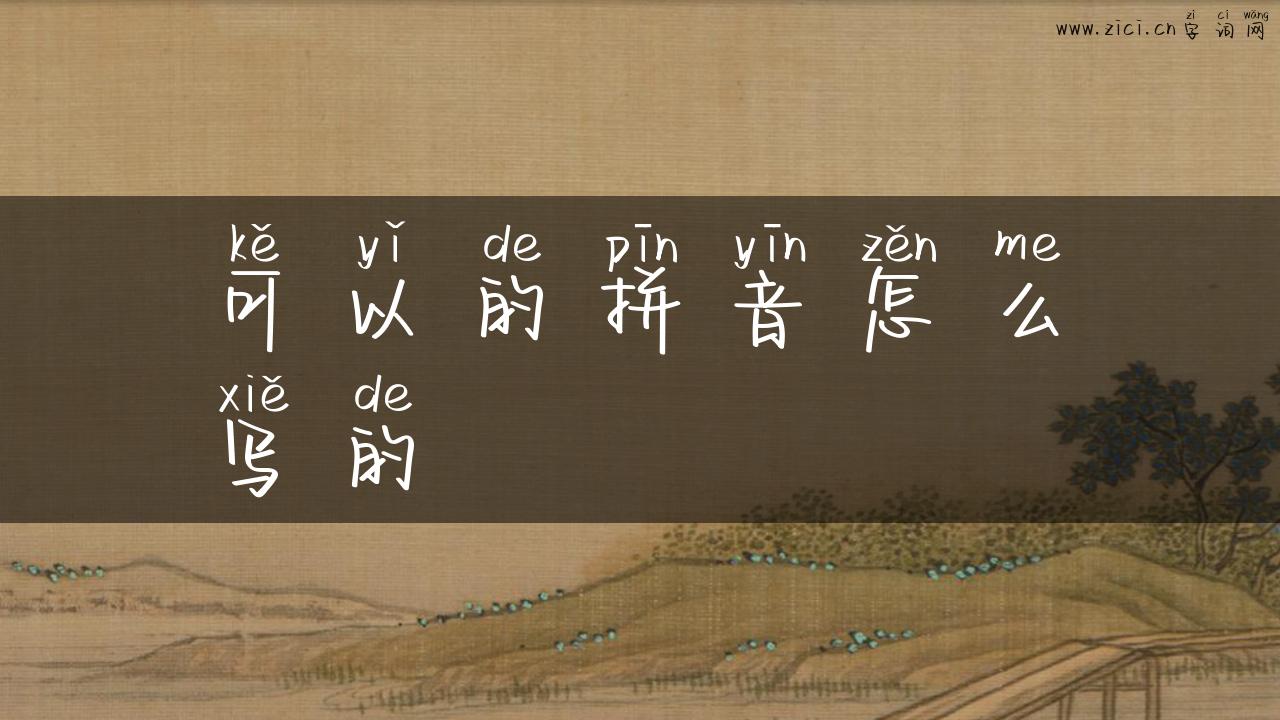 zì cí wǎng
www.zici.cn 字词网
kě yǐ de pīn yīn zěn me
可以的拼音怎么
xiě de
写的